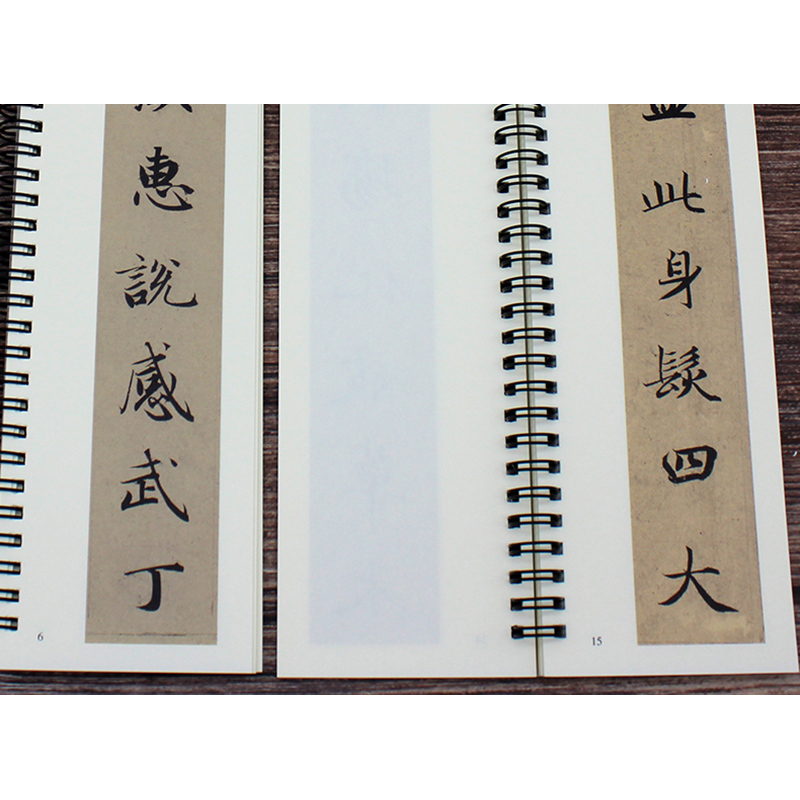 惠說感武丁
6
此身髮四大
15